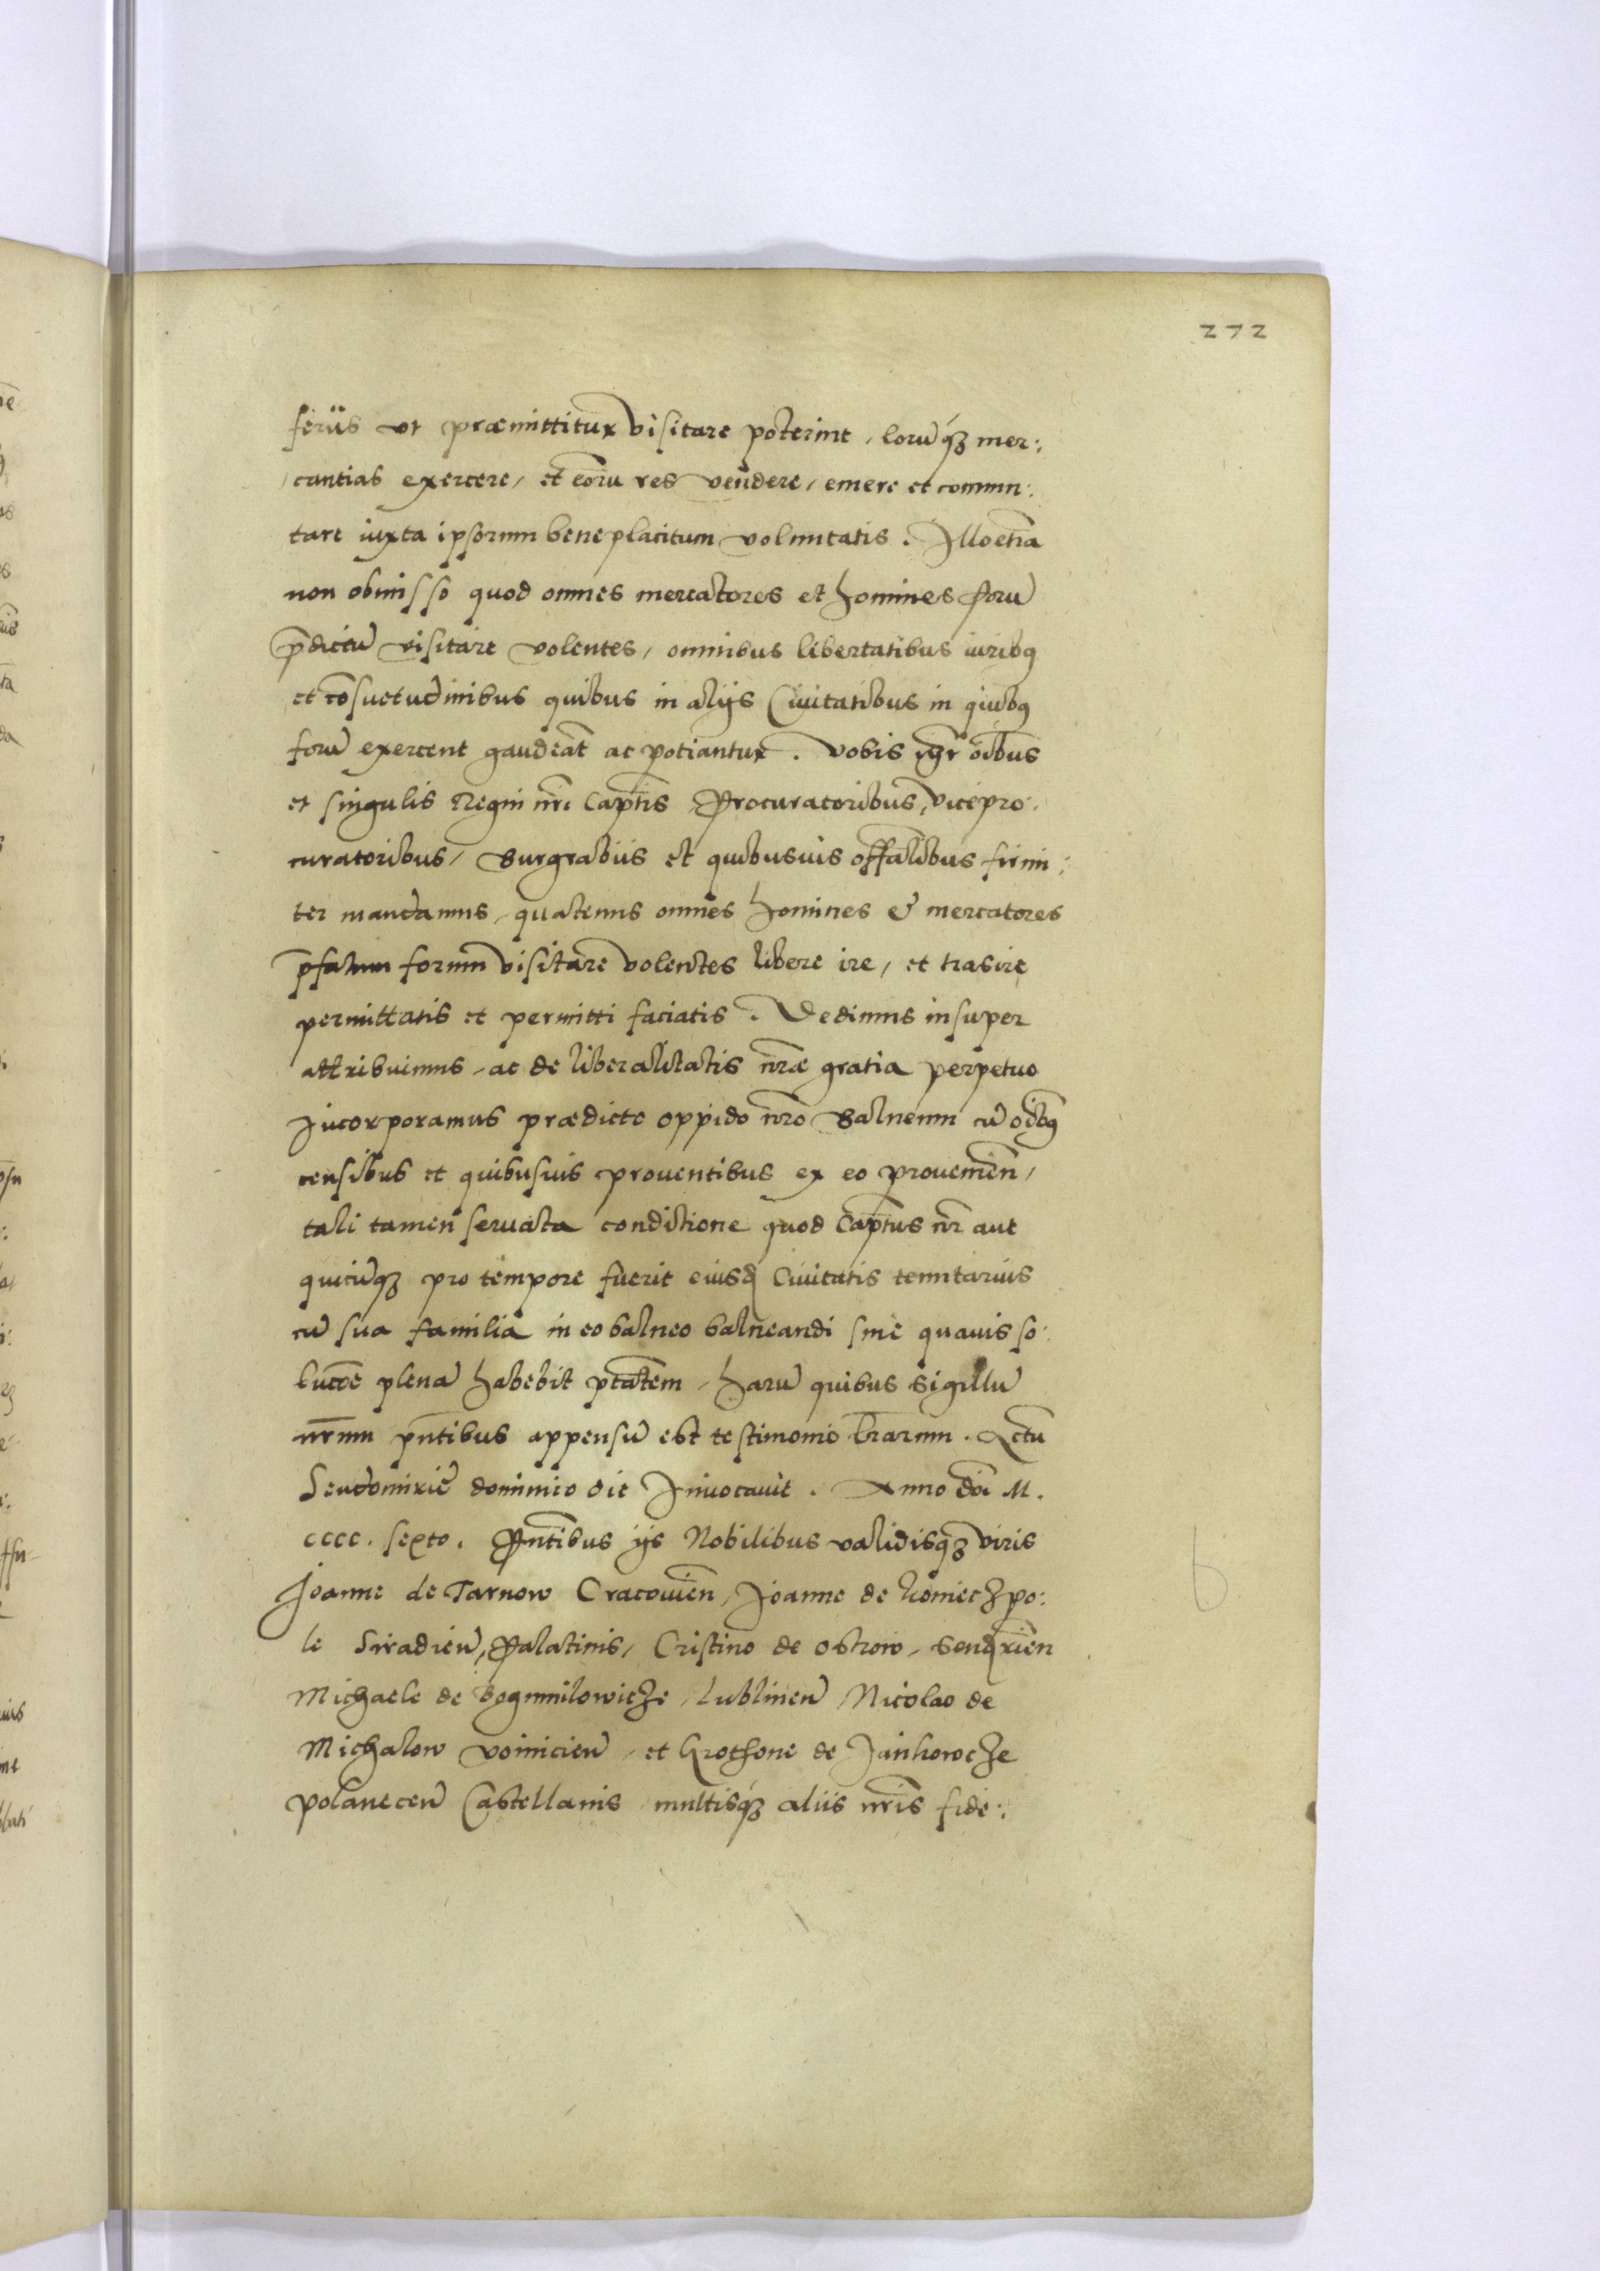 272
feriis vt præmittitur visitare poterint, loruq́ꝫ mer:
cantias exercere, et eoru̅ res vendere, emere et commu:
tare iuxta ipsorum beneplacitum voluntatis. Illo etia̅
non obmisso quod omnes mercatores et homines foru̅
p̅dictu̅ visitare volentes, omnibus libertatibus iuribꝫ
et co̅suetudinibus quibus in alijs Ciuitatibus in quibꝫ
foru̅ exercent gaudea̅t ac potiantur. Vobis igr̅ o̅ibus
et singulis Regni nr̅i Capt̅is Procuratoribus, vicepro:
curatoribus, Burgrabiis et quibusuis offa̅libus firmi:
ter mandamus, quatenus omnes homines & mercatores
p̅fatum forum visitare volentes libere ire, et tra̅sire
permittatis et permitti faciatis. Dedimus insuper
attribuimus, ac de liberalitatis nr̅æ gratia perpetuo
Incorporamus prædicto oppido nr̅o Balneum cu̅ o̅ibꝫ
censibus et quibusuis prouentibus ex eo prouenien̅,
tali tamen seruata conditione quod Capt̅us nr̅ aut
quicu̅qꝫ pro tempore fuerit eiusd̅ Ciuitatis tenutarius
cu̅ sua familia in eo balneo balneandi sine quauis so:
luco̅e plena̅ habebit pt̅atem, haru̅ quibus sigillu̅
nr̅um pn̅tibus appensu̅ est testimonio lr̅arum. Actu̅
Sendomirie̅ dominico die Inuocauit. Anno do̅i M.
cccc. sexto. Pn̅tibus ijs Nobilibus validisqꝫ viris
Joanne de Tarnow Cracouien̅, Joanne de koniechpo:
le Siradien̅, Palatinis, Cristino de ostrow, Send̅rien̅
Michaele de Bogumilowicze, Lublinen̅ Nicolao de
Michalow voinicien̅, et krothone de Jankowcze
polanecen̅ Castellanis multisq́ꝫ aliis nr̅is fide:
6